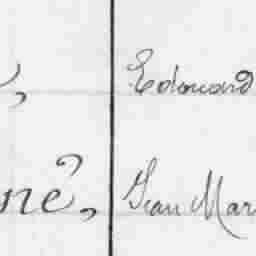 , Edouard
né, Jean Mar